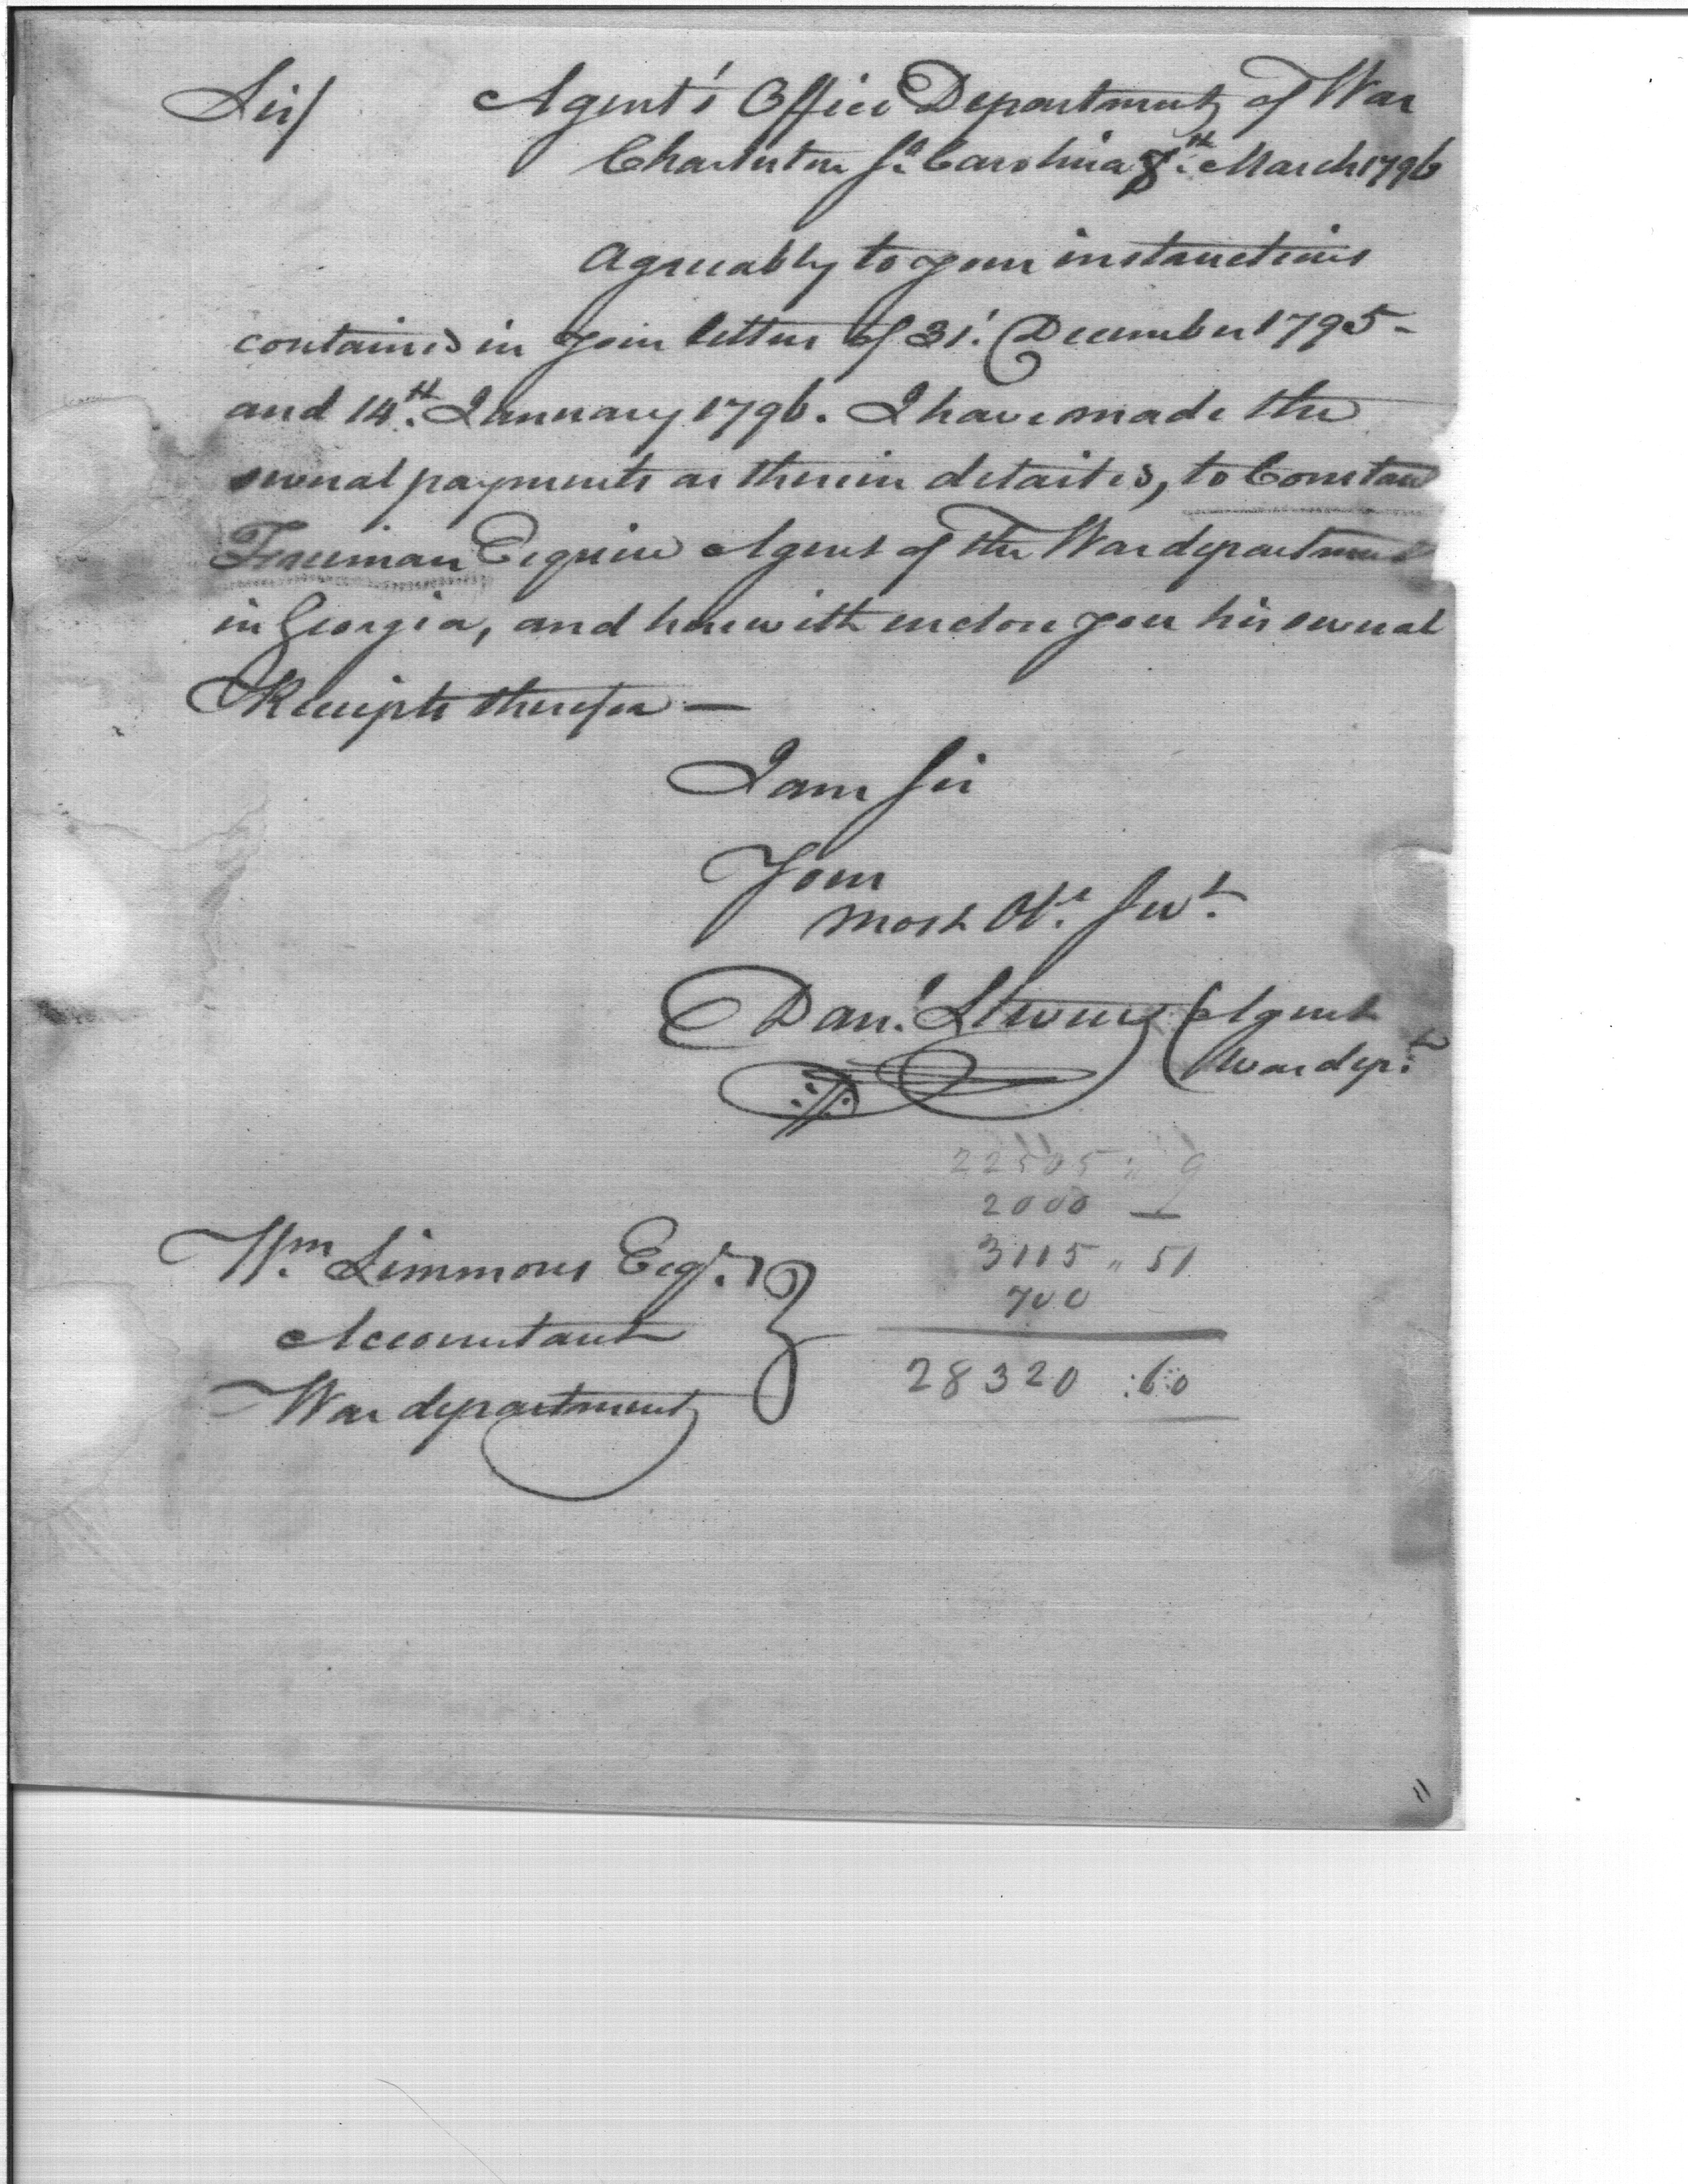 Sir/ Agent's Office Department of War
Charleston So. Carolina 8th. March 1796
Agreeably to your instructions
contained in your letters of 31st. December 1795-
and 14th. January 1796. I have made the
several payments as therein detailed, to Constan
Freeman Esquire Agent of the War department
in Georgia, and herewith enclose you his several
Receipts therefor —
I am Sir
Your
most Obt. Servt.
Danl. Stevens Agent
War dept.
22505 " 9
2000 —
3115 " 51
700
28320 : 60
Wm. Simmons Esqr.
Accountant
War department
11